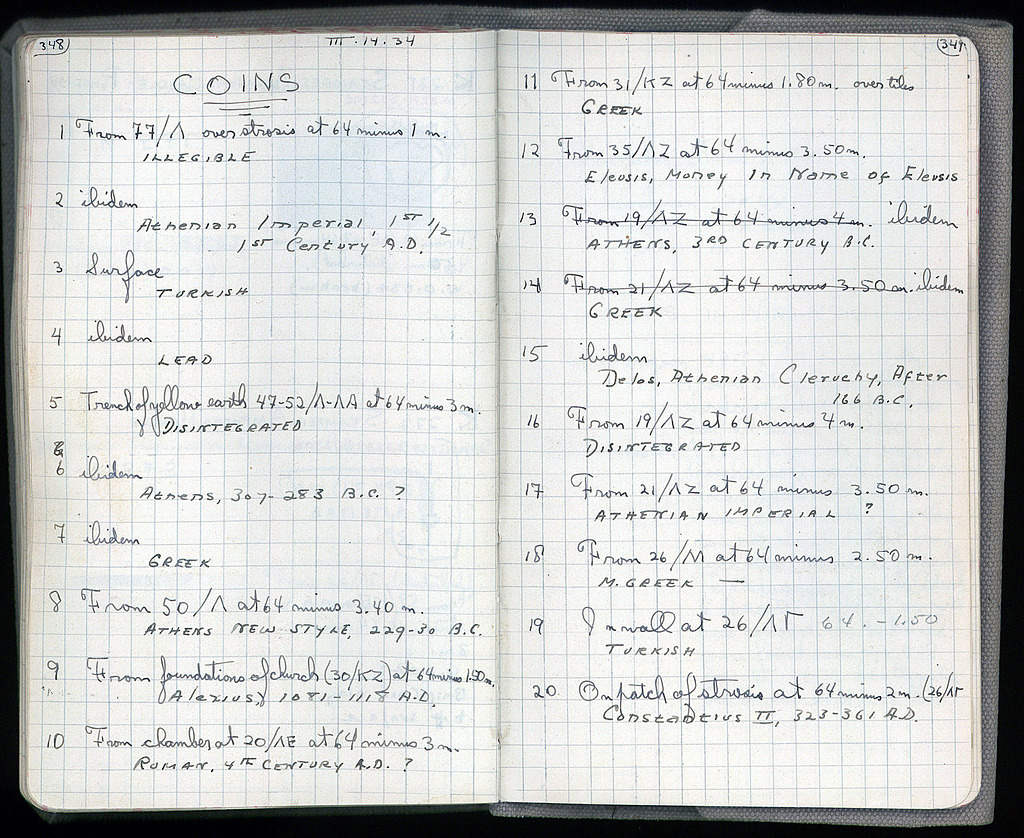 348
III.14.34
COINS
1 From 77/Λ over strosis at 64 minus 1 m.
ILLEGIBLE
2 ibidem
Athenian Imperial, 1ST 1/2
1ST Century A.D.
3 Surface
TURKISH
4 ibidem
LEAD
5 Trench of yellow earth 47-52/Λ-ΛΑ at 64 minus 3 m.
DISINTEGRATED
6 ibidem
Athens, 307-283 B.C. ?
7 ibidem
GREEK
8 From 50/Λ at 64 minus 3.40 m.
ATHENS NEW STYLE, 229-30 B.C.
9 From foundations of church (30/ΚΖ) at 64 minus 1.50 m.
Alexius, 1081-1118 A.D.
10 From chamber at 20/ΛΕ at 64 minus 3 m.
ROMAN, 4TH CENTURY A.D. ?
349
11 From 31/ΚΖ at 64 minus 1.80 m. over tiles
GREEK
12 From 35/ΛΖ at 64 minus 3.50 m.
Eleusis, Money In Name of Eleusis
13 From 19/ΛΖ at 64 minus 4 m. ibidem
ATHENS, 3RD CENTURY B.C.
14 From 21/ΛΖ at 64 minus 3.50 m. ibidem
GREEK
15 ibidem
Delos, Athenian Cleruchy, After
166 B.C.
16 From 19/ΛΖ at 64 minus 4 m.
DISINTEGRATED
17 From 21/ΛΖ at 64 minus 3.50 m.
ATHENIAN IMPERIAL ?
18 From 26/Λ1 at 64 minus 2.50 m.
M. GREEK —
19 In wall at 26/ΛΓ 64. -1.50
TURKISH
20. On patch of strosis at 64 minus 2 m. (26/ΛΓ
Constantius II, 323-361 A.D.